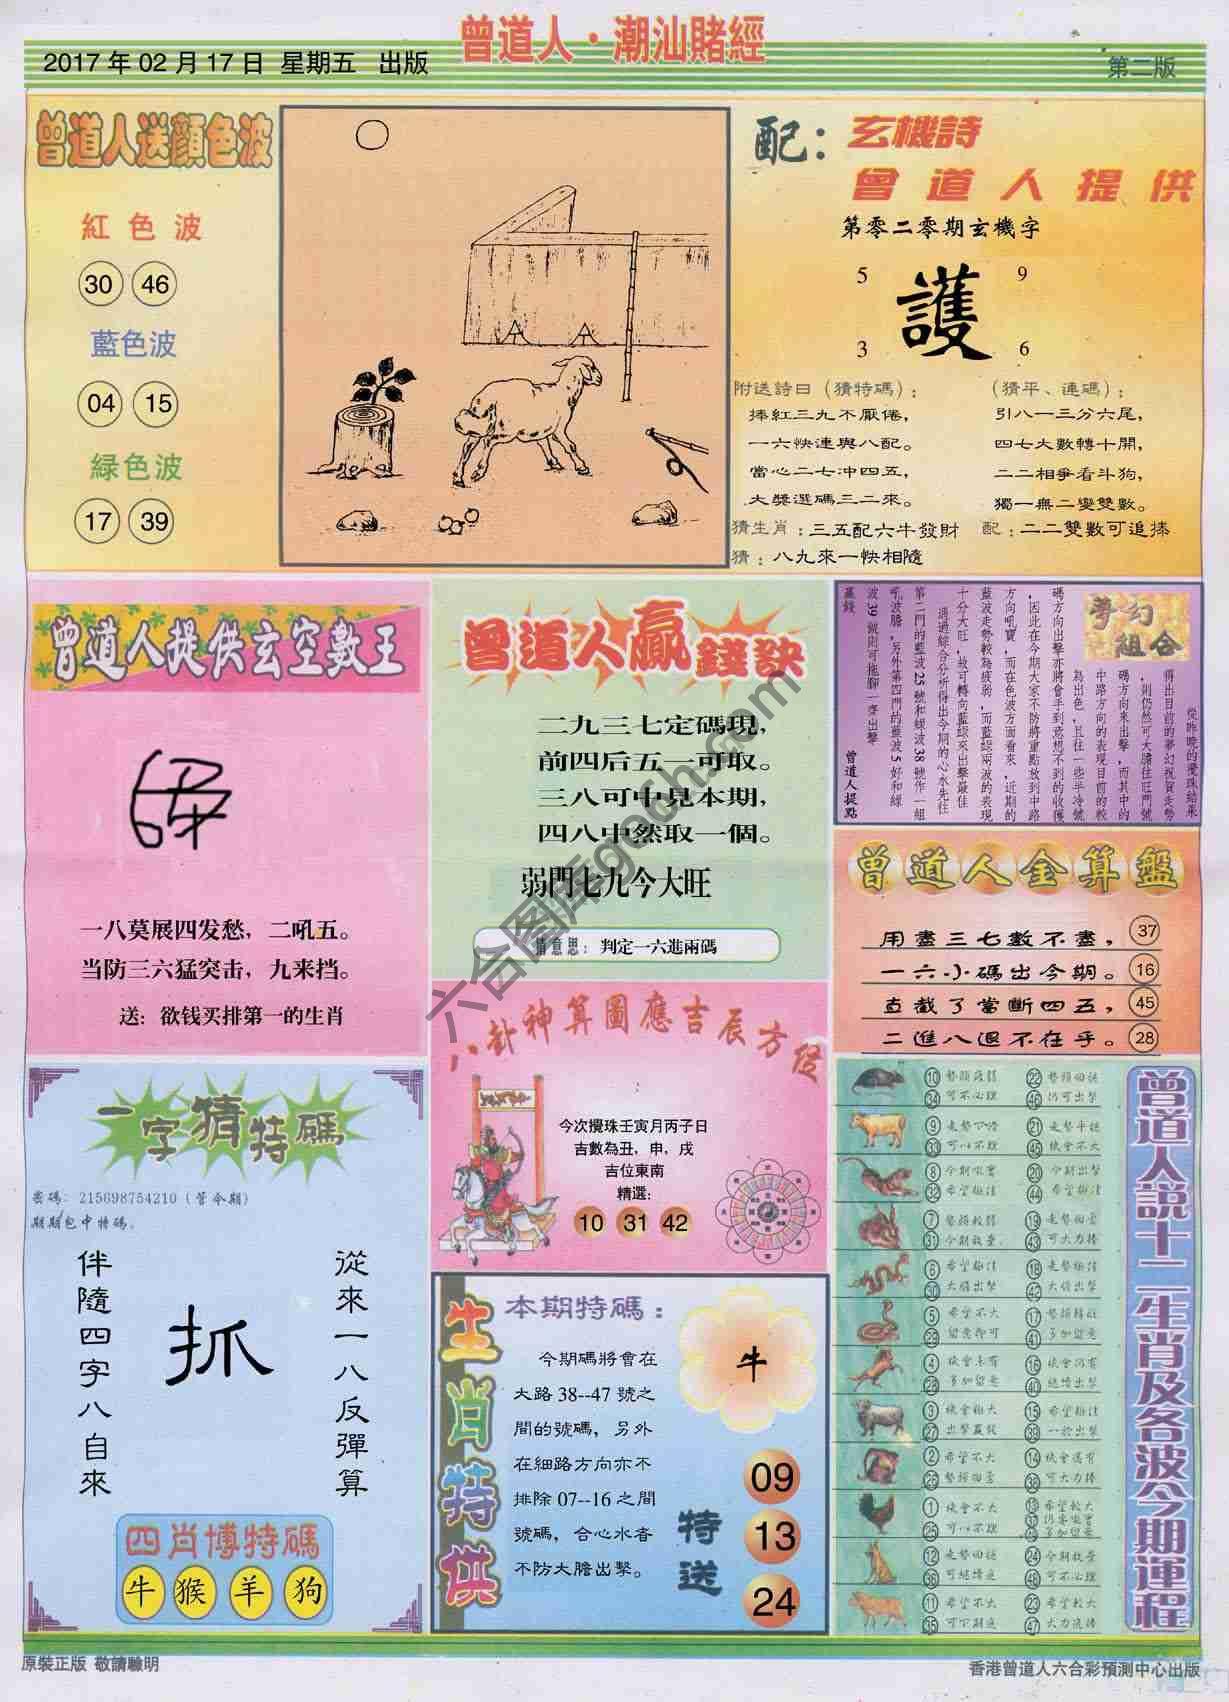 曾道人·潮汕賭經
2017年02月17日 星期五 出版
第二版
曾道人送顏色波
紅色波
30 46
藍色波
04 15
緑色波
17 39
配:
玄機詩
曾道人提供
第零二零期玄機字
5 9
護
3 6
附送詩曰(猜特碼):
捧紅三九不厭倦,
一六快連與八配。
當心二七冲四五,
大獎選碼三二來。
(猜平、連碼):
引八一三分六尾,
四七大數轉十開,
二二相爭看斗狗,
獨一無二變雙數。
猜生肖:三五配六牛發財
配:二二雙數可追捧
猜:八九來一快相隨
曾道人提供玄空數王
一八莫展四发愁,二吼五。
当防三六猛突击,九来挡。
送:欲钱买排第一的生肖
曾道人贏錢訣
二九三七定碼現,
前四后五一可取。
三八可中見本期,
四八中然取一個。
弱門七九今大旺
猜意思:判定一六進兩碼
夢幻組合
從昨晚的攪珠結果
得出目前的夢幻祝賀走勢
,則仍然可大膽往旺門號
碼方向來出擊,而其中的
中路方向的表現目前的較
為出色,且往一些半冷號
碼方向出擊亦將會手到意想不到的收獲
,因此在今期大家不防將重點放到中路
方向吼寶,而在色波方面看來,近期的
藍波走勢較為疲弱,而藍緑兩波的表現
十分大旺,故可轉向藍緑來出擊最佳
通過綜合分析得出今期的心水先往
第二門的藍波25號和緑波38號作一組
吼波膽,另外第四門的藍波5好和緑
波39號則可拖腳一齊出擊
贏錢
曾道人提點
曾道人金算盤
用盡三七數不盡, 37
一六小碼出今期。 16
直截了當斷四五, 45
二進八退不在乎。 28
八卦神算圖應吉辰方位
今次攪珠壬寅月丙子日
吉數為丑,申,戌
吉位東南
精選:
10 31 42
一字猜特碼
密碼: 215698754210(管令期)
期期包中特碼。
從來一八反彈算
抓
伴隨四字八自來
四肖博特碼
牛 猴 羊 狗
生肖特供
本期特碼:
今期碼將會在
大路38--47號之
間的號碼,另外
在細路方向亦不
排除07--16之間
號碼,合心水者
不防大膽出擊。
牛
特送
09
13
24
曾道人說十二生肖及各波今期運程
10 34 可不必理 22 46 仍可出擊
9 33 可以不理 21 45 機會不大
8 32 希望極佳 20 今期出擊 44 希望極佳
7 31 今期故量 19 43 可大力捧
6 希望極佳 30 大膽出擊 18 走勢極佳 42 大膽出擊
5 希望不大 29 留意即可 17 41 多加留意
4 機會未有 28 多加留意 16 機會仍有 40 繼續出擊
3 機會極大 27 出擊贏錢 15 希望極佳 39 一於出擊
2 希望不大 26 14 機會還有 38 可大力捧
1 機會不大 25 可以不理 13 希望較大 37 49 多加留意
12 36 24 48 可不必理
11 希望不大 35 23 希望較大 47 大力追捧
六合图库gdch.com
原裝正版 敬請驗明
香港曾道人六合彩預測中心出版